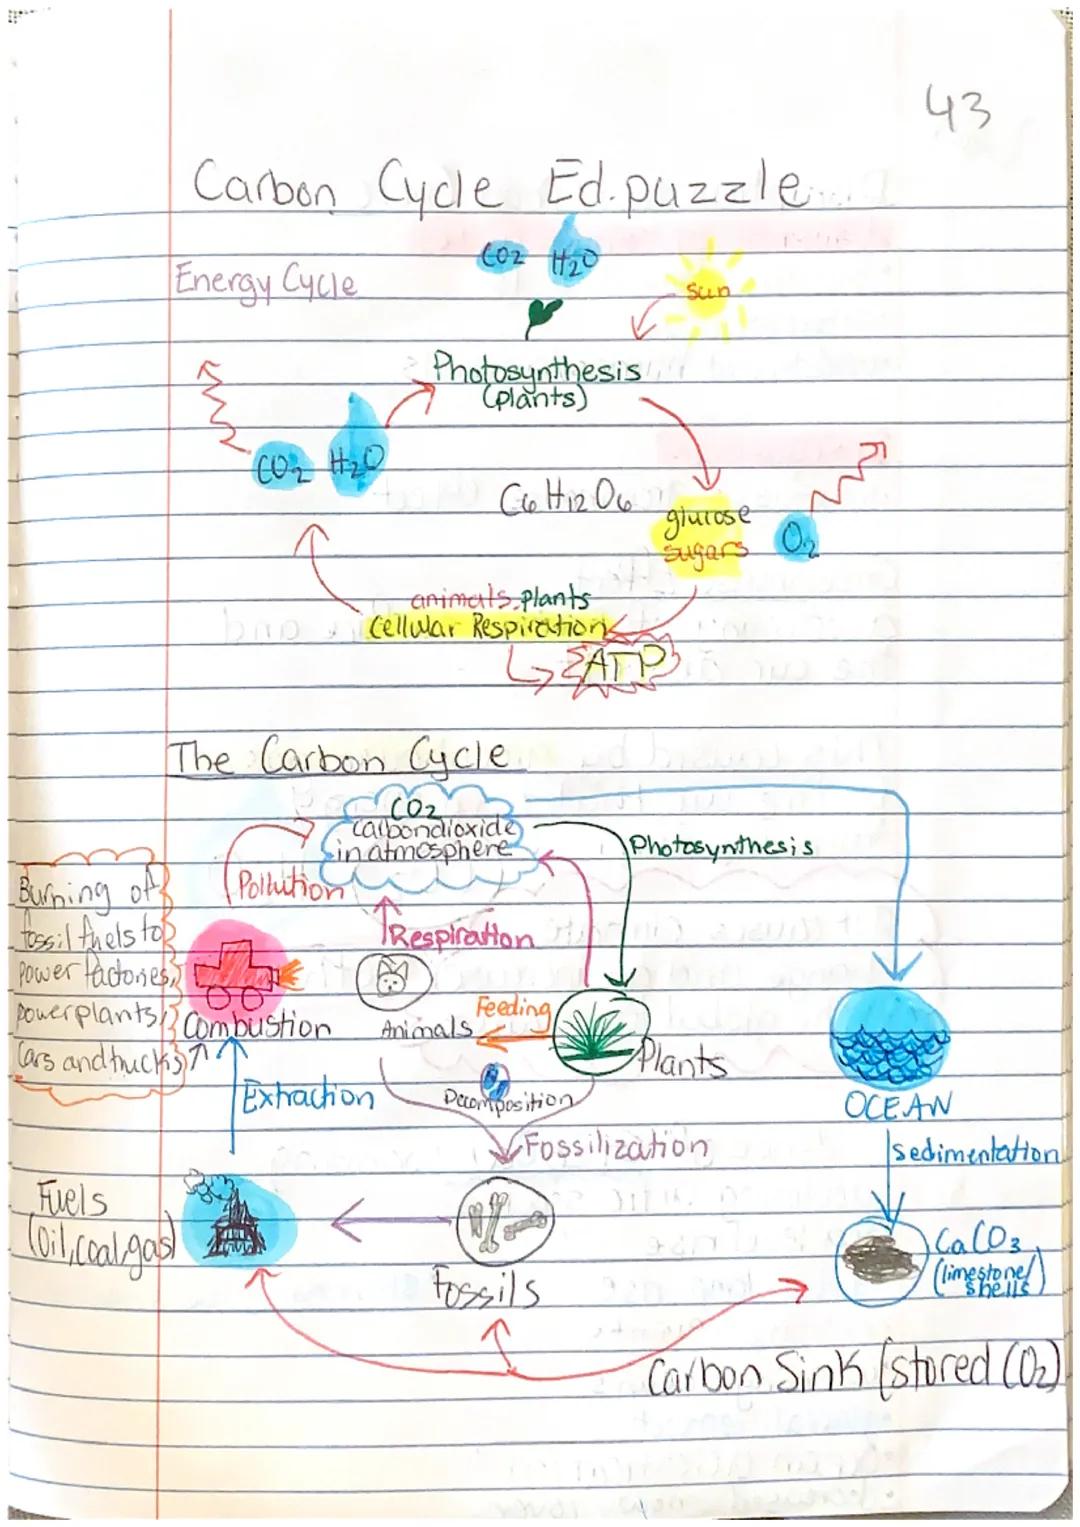 43
Carbon Cycle Ed.puzzle
CO2 H2O
Energy Cycle
sun
Photosynthesis
(plants)
CO2 H2O
C6 H12 O6
glucose
sugars
O2
animals, plants
Cellular Respiration
ATP
The Carbon Cycle
CO2
carbondioxide
in atmosphere
Photosynthesis
Pollution
Burning of
fossil fuels to
power factories,
powerplants,
Cars and trucks
Respiration
Combustion
Animals
Feeding
Plants
OCEAN
Extraction
Decomposition
Fossilization
sedimentation
Fuels
(Oil, coal, gas)
Fossils
CaCO3
(limestone/
shells)
Carbon Sink (stored CO2)